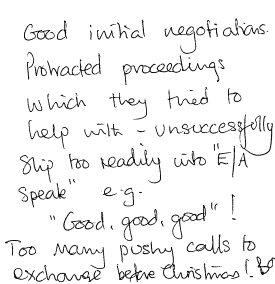 Good initial negotiations.
Protracted proceedings
which they tried to
help with - unsuccessfully
Slip too readily into "E/A
Speak" e.g.
"Good, good, good" !
Too many pushy calls to
exchange before Christmas !